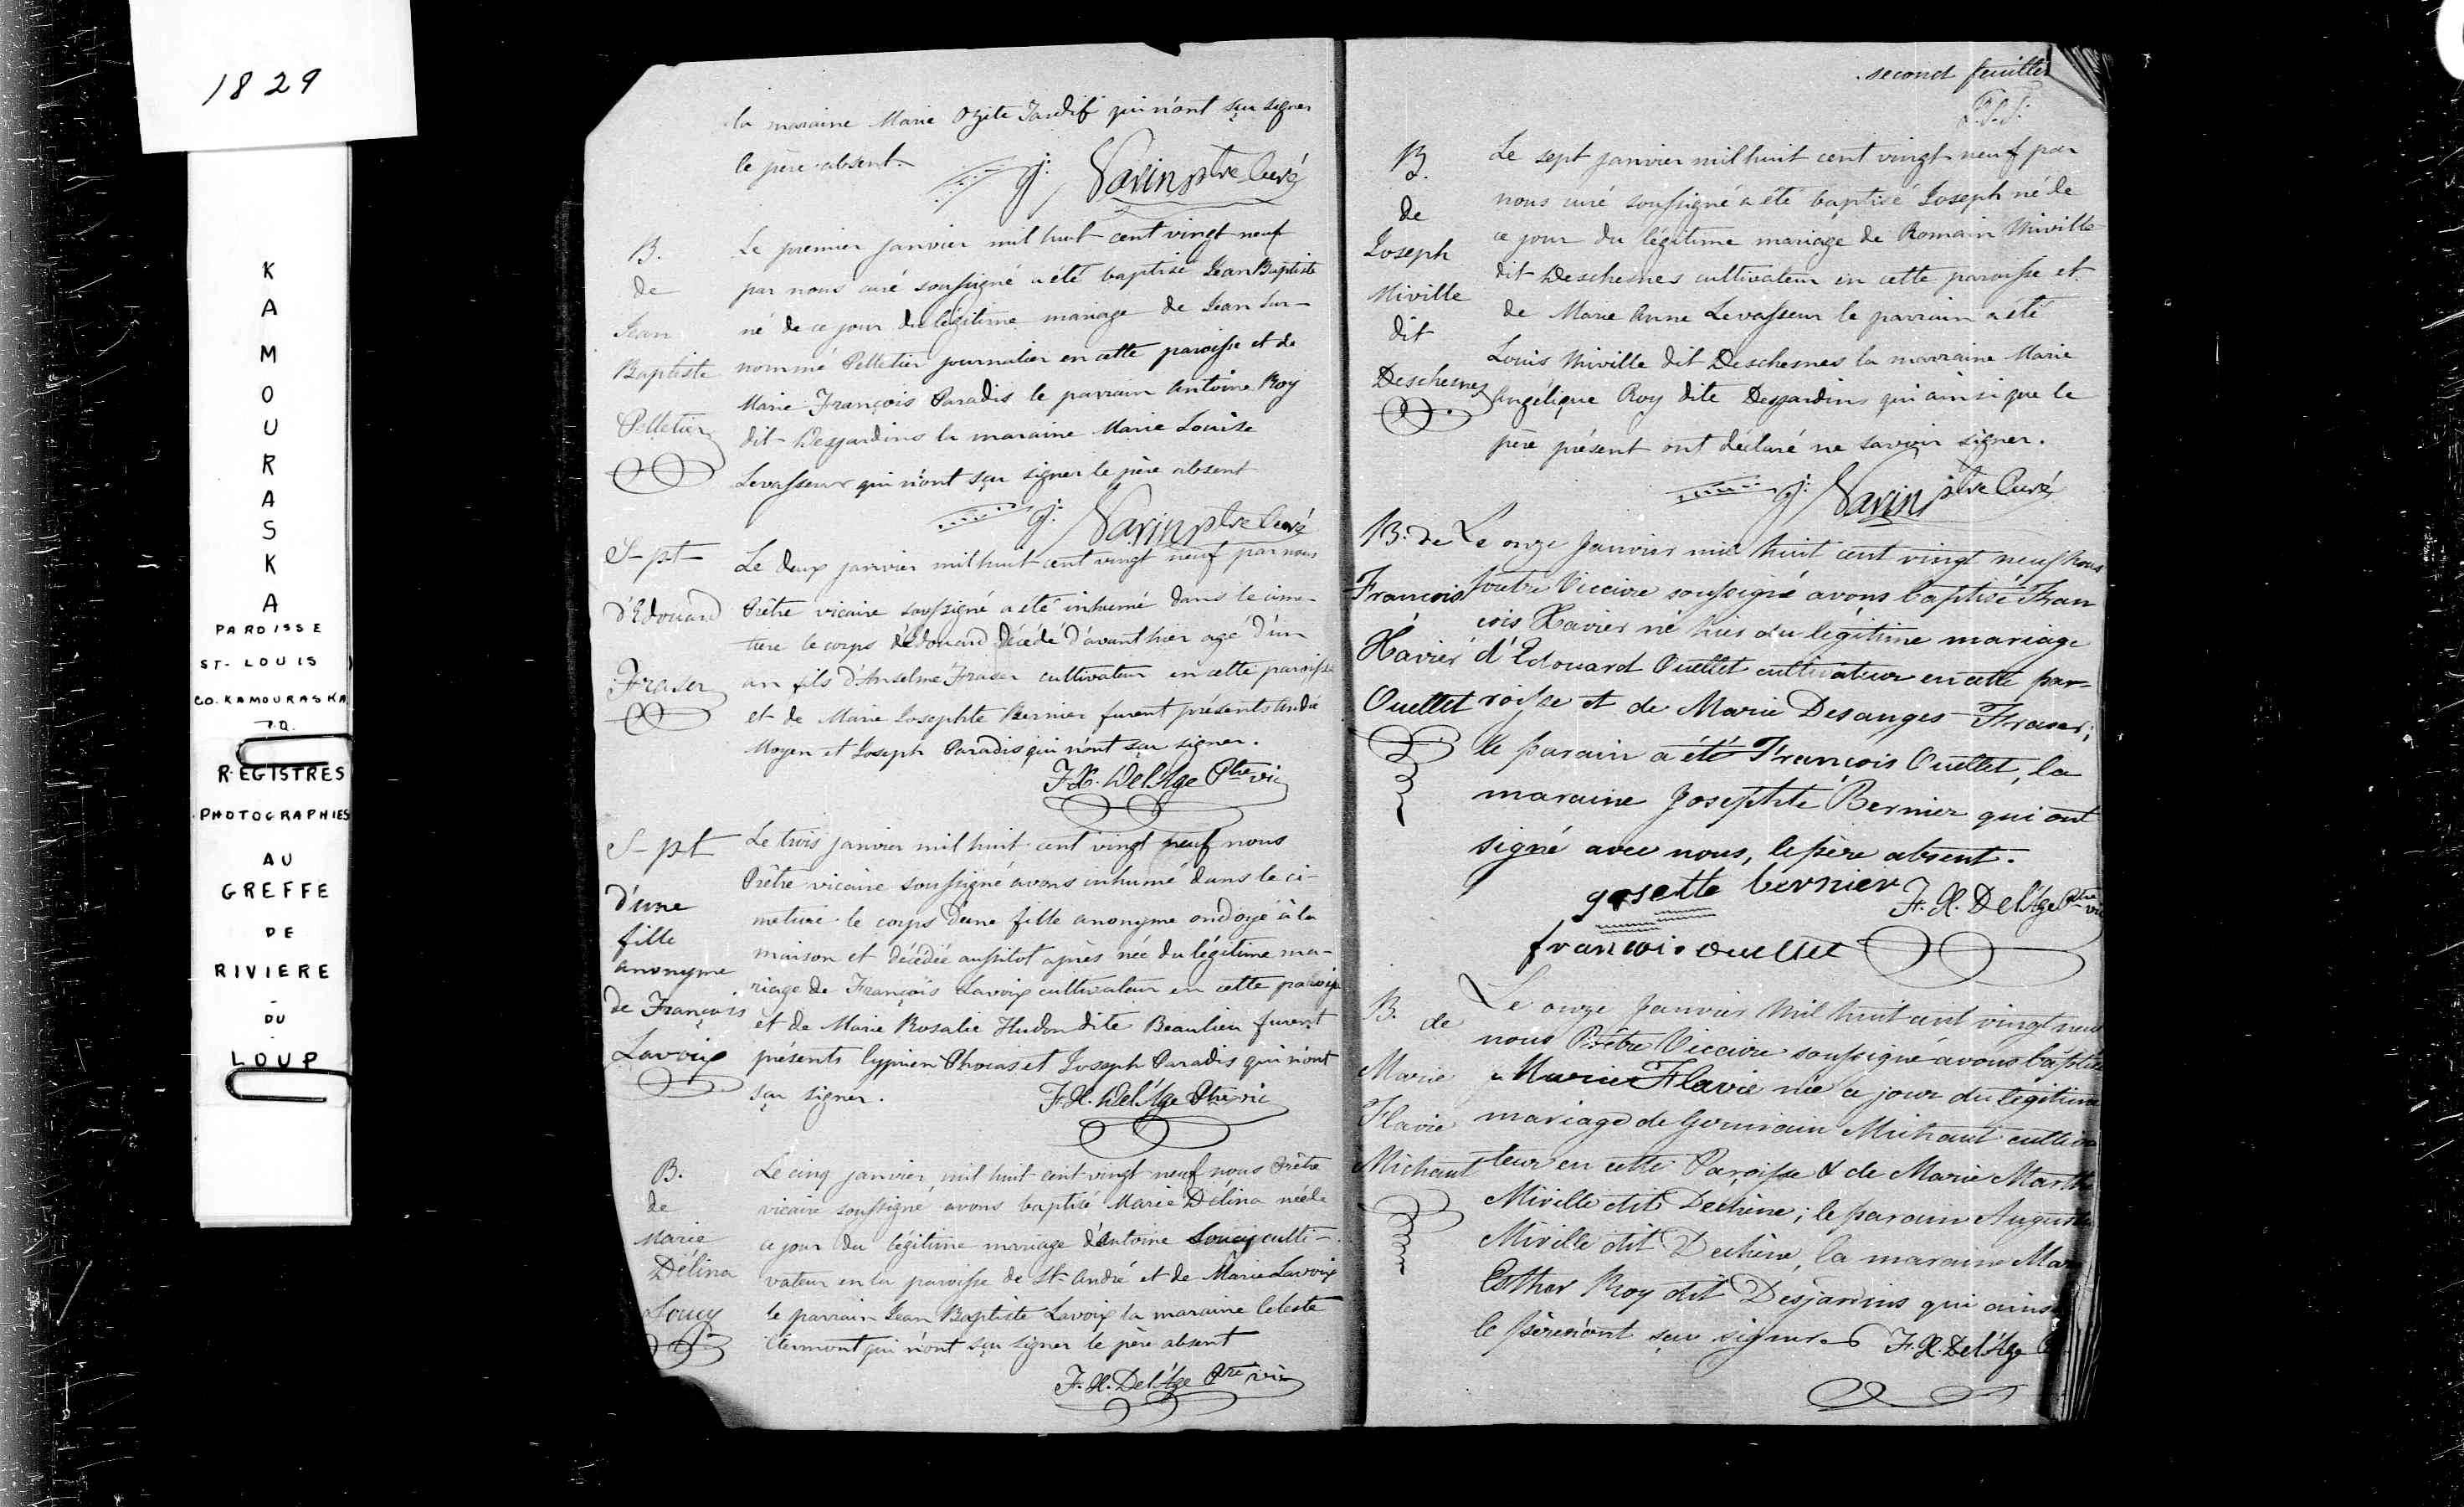 1829
KAMOURASKA
PAROISSE
ST-LOUIS
CO. KAMOURASKA
P.Q.
REGISTRES
PHOTOGRAPHIES
AU
GREFFE
DE
RIVIERE
-
DU
-
LOUP
la maraine Marie Ozite Tardif qui n'ont sçu signer
le père absent.
J: Varin ptre Curé
B.
de
Jean
Baptiste
Pelletier
Le premier janvier mil huit cent vingt neuf
par nous curé soussigné a été baptisé Jean Baptiste
né de ce jour du légitime mariage de Jean Sur-
nommé Pelletier journalier en cette paroisse et de
Marie François Paradis le parrain Antoine Roy
dit Desjardins la maraine Marie Louise
Levasseur qui n'ont sçu signer le père absent
J: Varin ptre Curé
S-pt
d'Edouard
Fraser
Le deux janvier mil huit cent vingt neuf par nous
Prêtre vicaire soussigné a été inhumé dans le cime-
tiere le corps d'Edouard décédé d'avant hier agé d'un
an fils d'Anselme Fraser cultivateur en cette paroisse
et de Marie Josephte Bernier furent présents André
Moyen et Joseph Paradis qui n'ont sçu signer.
F.X. Del'Age Ptre vic
S-pt
d'une
fille
anonyme
de François
Lavoix
Le trois janvier mil huit cent vingt neuf nous
Prêtre vicaire soussigné avons inhumé dans le ci-
metiere le corps d'une fille anonyme ondoyé à la
maison et décédée aussitot après née du légitime ma-
riage de François Lavoix cultivateur en cette paroisse
et de Marie Rosalie Hudon dite Beaulieu furent
présents Cyprien Phocas et Joseph Paradis qui n'ont
sçu signer.
F.X. Del'Age Ptre vic
B.
de
Marie
Délina
Soucy
Le cinq janvier mil huit cent vingt neuf nous Prêtre
vicaire soussigné avons baptisé Marie Délina née de
ce jour du légitime mariage d'Antoine Soucy culti-
vateur en la paroisse de St. André et de Marie Lavoix
le parrain Jean Baptiste Lavoix la maraine Celeste
Clermont qui n'ont sçu signer le père absent
F.X. Del'Age Ptre vic
second feuillet
B.
de
Joseph
Miville
dit
Deschesnes
Le sept janvier mil huit cent vingt neuf par
nous curé soussigné a été baptisé Joseph né de
ce jour du légitime mariage de Romain Miville
dit Deschesnes cultivateur en cette paroisse et
de Marie Anne Levasseur le parrain a été
Louis Miville dit Deschesnes la marraine Marie
Angélique Roy dite Desjardins qui ainsi que le
père présent ont déclaré ne savoir signer.
J: Varin ptre Curé
B. de
François
Xavier
Ouellet
Le onze Janvier mil huit cent vingt neuf nous
Prêtre Viccaire soussigné avons baptisé Fran
çois Xavier né hier du légitime mariage
d'Edouard Ouellet cultivateur en cette par-
roisse et de Marie Desanges Fraser;
le parain a été François Ouellet, la
maraine Josephte Bernier qui ont
signé avec nous, le père absent.
gosette bernier F.X. Del'Age Ptre vic
francois ouellet
B. de
Marie
Flavie
Michaut
Le onze Janvier Mil huit cent vingt neuf
nous Prêtre Viccaire soussigné avons baptisé
Marie Flavie née ce jour du légitime
mariage de Germain Michaut cultiva
teur en cette Paroisse & de Marie Marthe
Miville dit Dechêne; le parain Augustin
Miville dit Dechêne, la maraine Mar
Esther Roy dit Desjardins qui ainsi
le père n'ont sçu signer. F.X. Del'Age